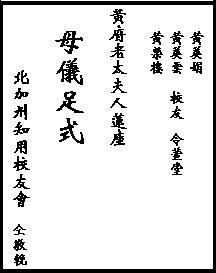 黃英娟
黃英雲 校友 令萱堂
黃榮樓
黃府老太夫人蓮座
母儀足式
北加州知用校友會 仝敬輓